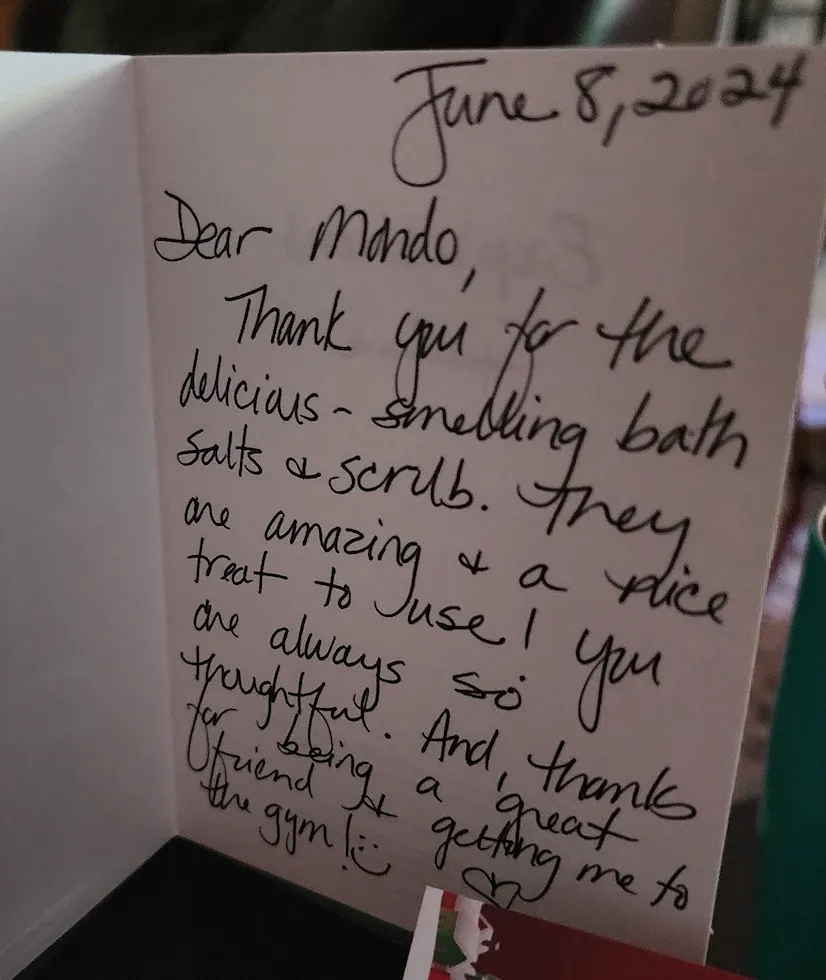 June 8, 2024
Dear Mondo,
Thank you for the
delicious-smelling bath
salts & scrub. They
are amazing & a nice
treat to use! You
are always so
thoughtful. And, thanks
for being a great
friend & getting me to
the gym!